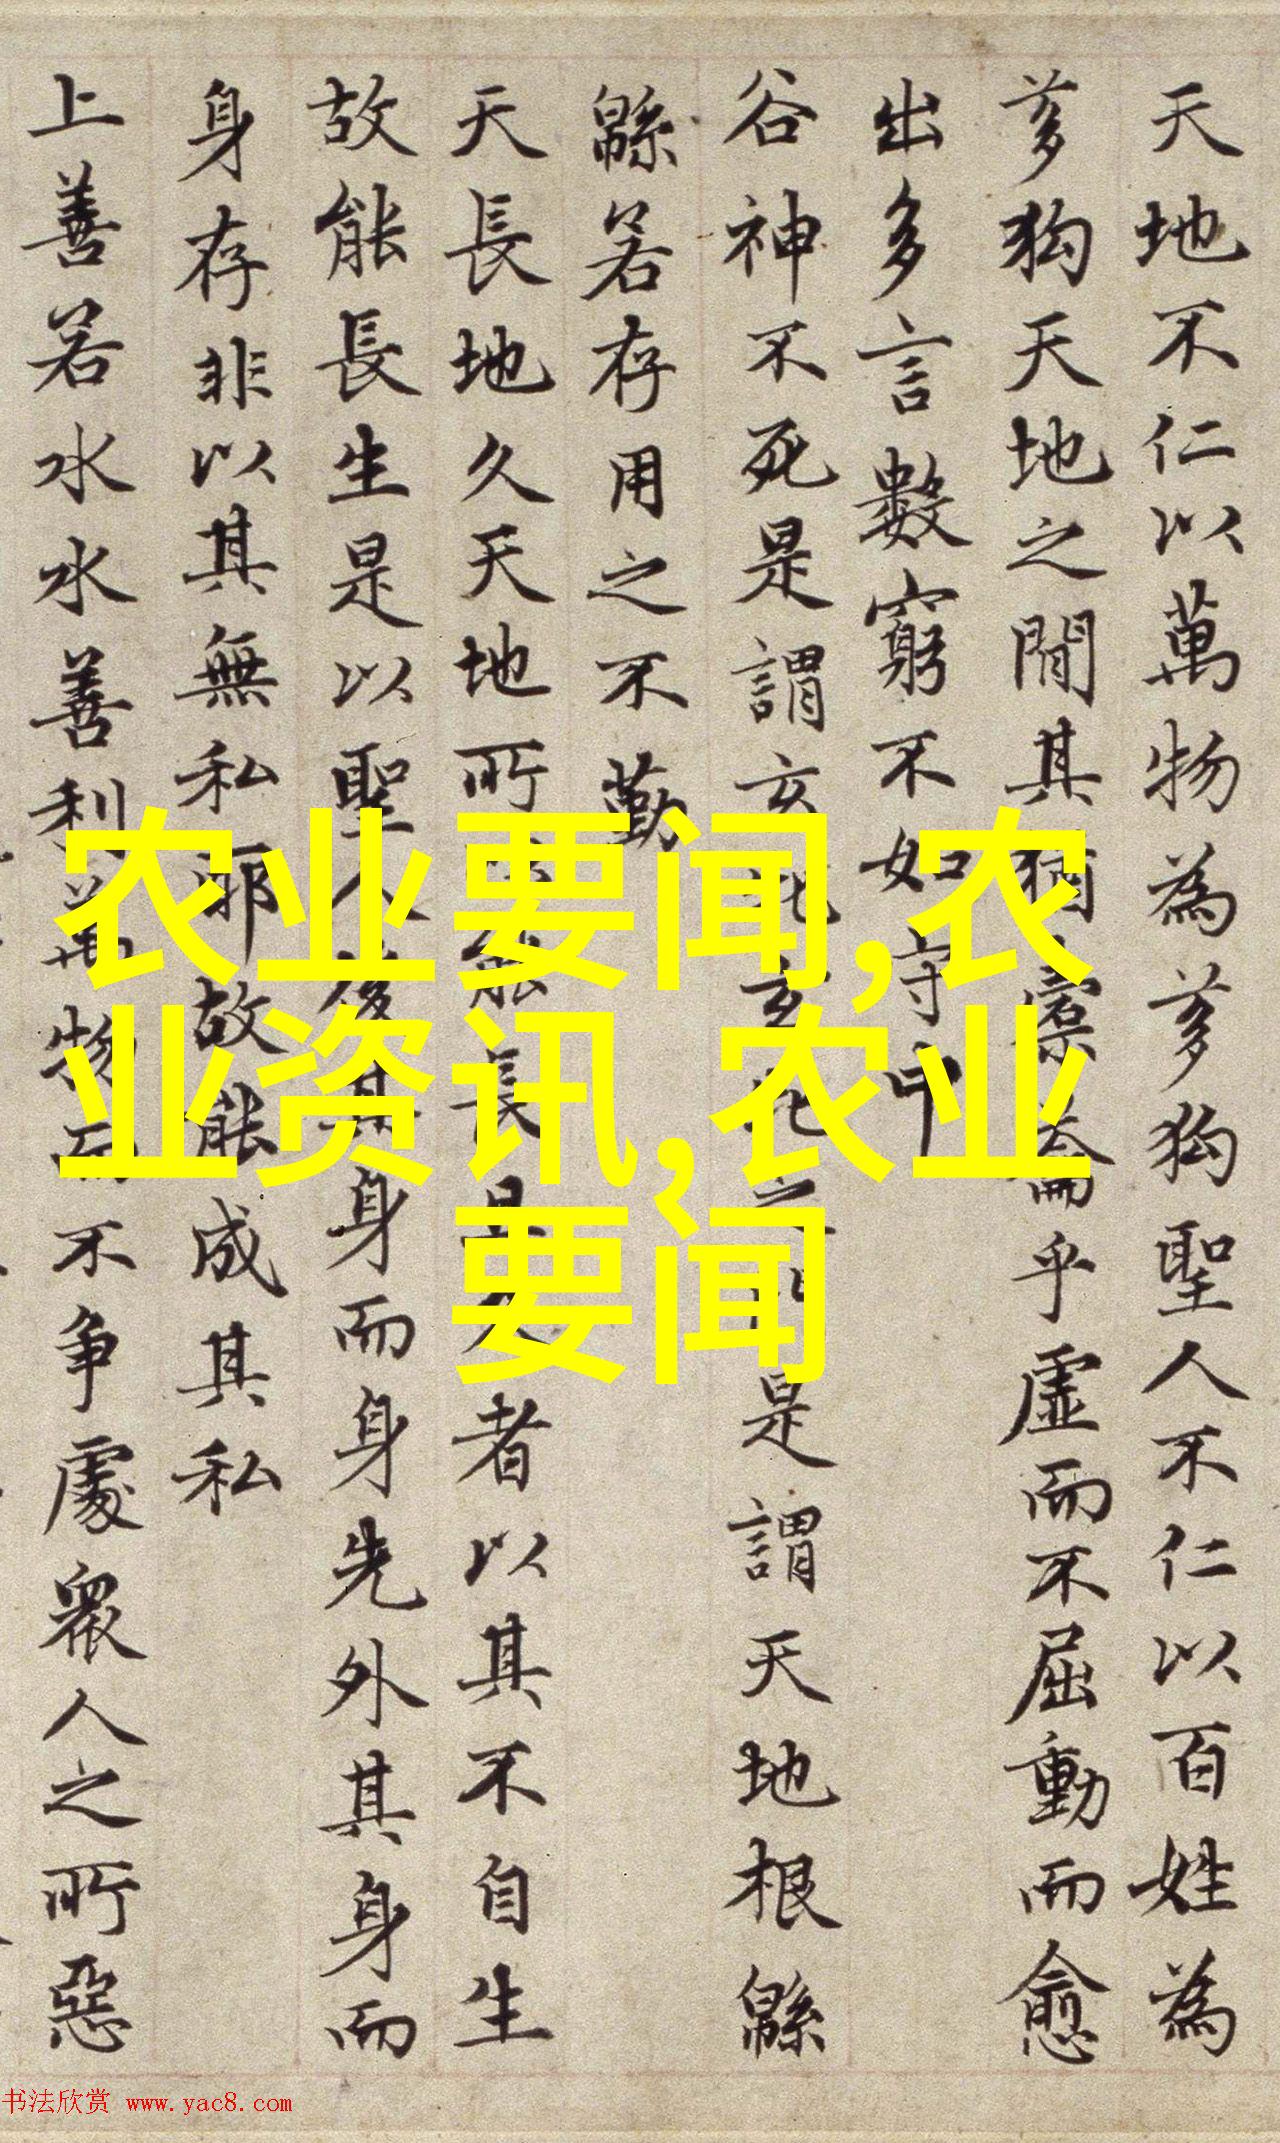 天地不仁以萬物為芻狗聖人不仁以百姓為
芻狗天地之間其猶橐籥乎虛而不屈動而愈
出多言數窮不如守中
谷神不死是謂玄牝玄牝之門是謂天地根緜
緜若存用之不勤
天長地久天地所以能長且久者以其不自生
故能長生是以聖人後其身而身先外其身而
身存非以其無私耶故能成其私
上善若水水善利萬物而不爭處衆人之所惡
农业要闻,农
业资讯,农业
要闻
书法欣赏 www.yac8.com